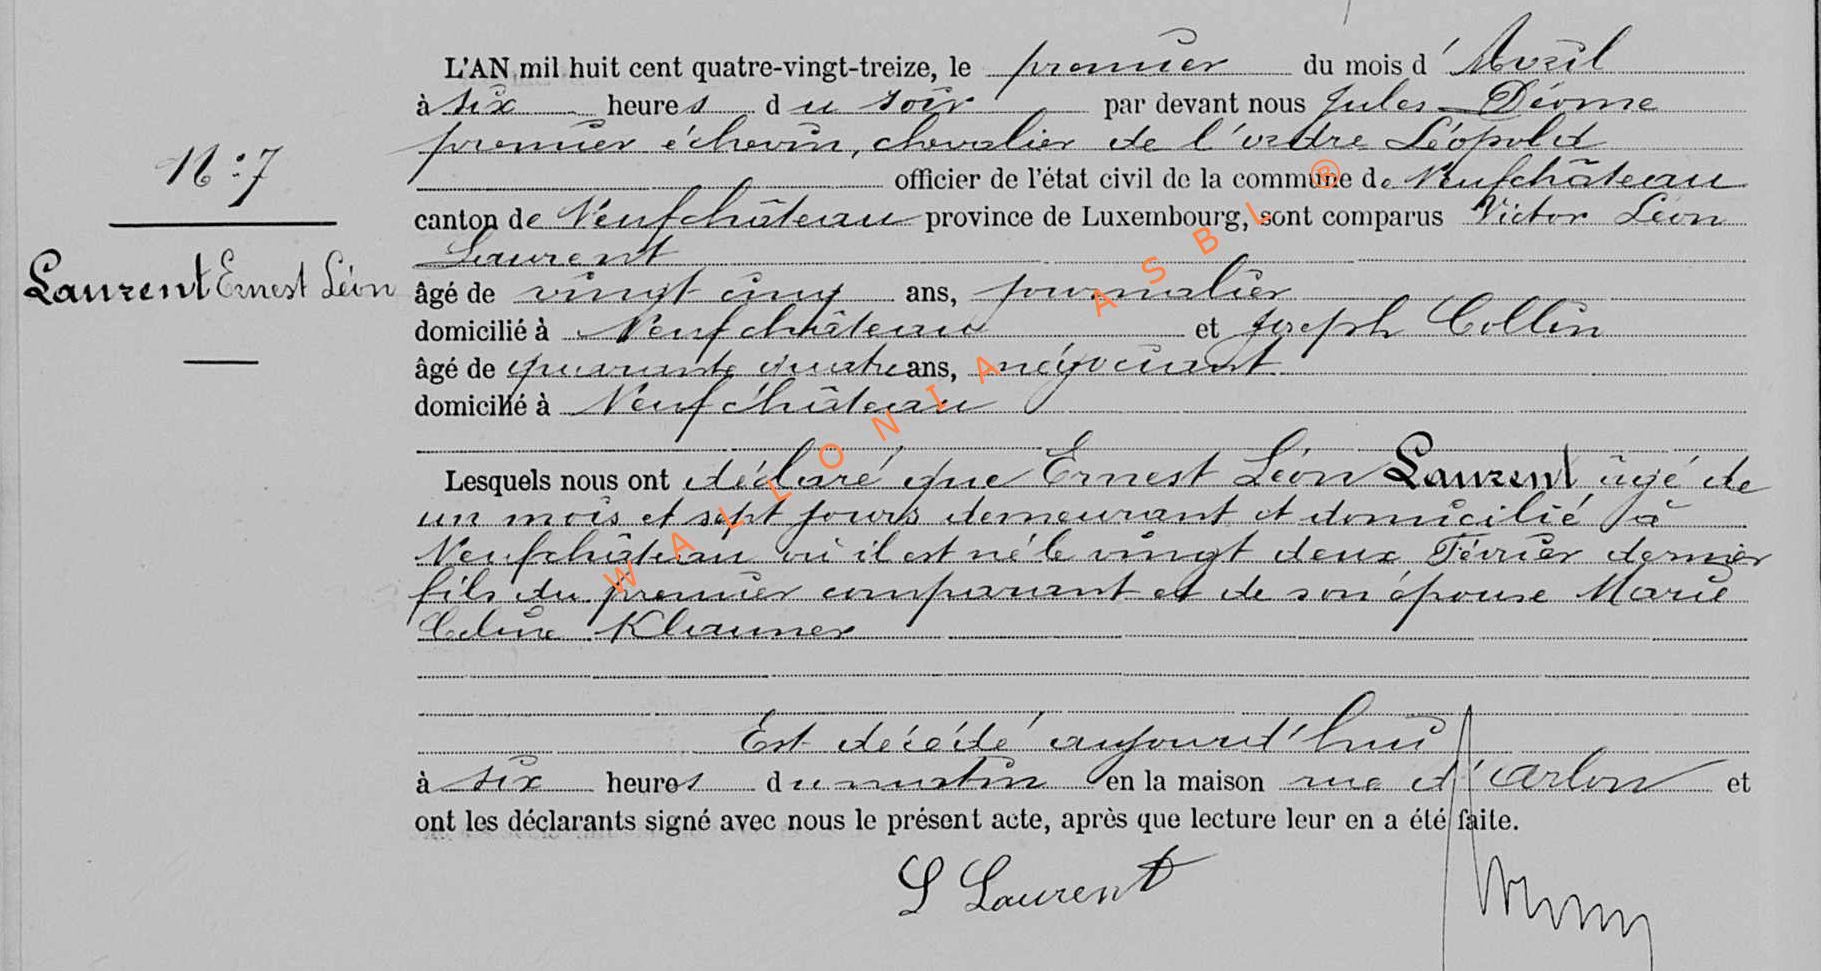 N°: 7
Laurent Ernest Léon
L'AN mil huit cent quatre-vingt-treize, le premier du mois d'Avril
à six heures du soir par devant nous Jules Déome
premier échevin, chevalier de l'ordre Léopold
officier de l'état civil de la commune de Neufchâteau
canton de Neufchâteau province de Luxembourg, sont comparus Victor Léon
Laurent
âgé de vingt cinq ans, journalier
domicilié à Neufchâteau et Joseph Collin
âgé de quarante quatre ans, négociant
domicilié à Neufchâteau
Lesquels nous ont déclaré que Ernest Léon Laurent âgé de
un mois et sept jours demeurant et domicilié à
Neufchâteau où il est né le vingt deux Février dernier
fils du premier comparant et de son épouse Marie
Celine Klauner
Est décédé aujourd'hui
à six heures du matin en la maison rue d'Arlon et
ont les déclarants signé avec nous le présent acte, après que lecture leur en a été faite.
L Laurent
WALLONIA ASBL ®